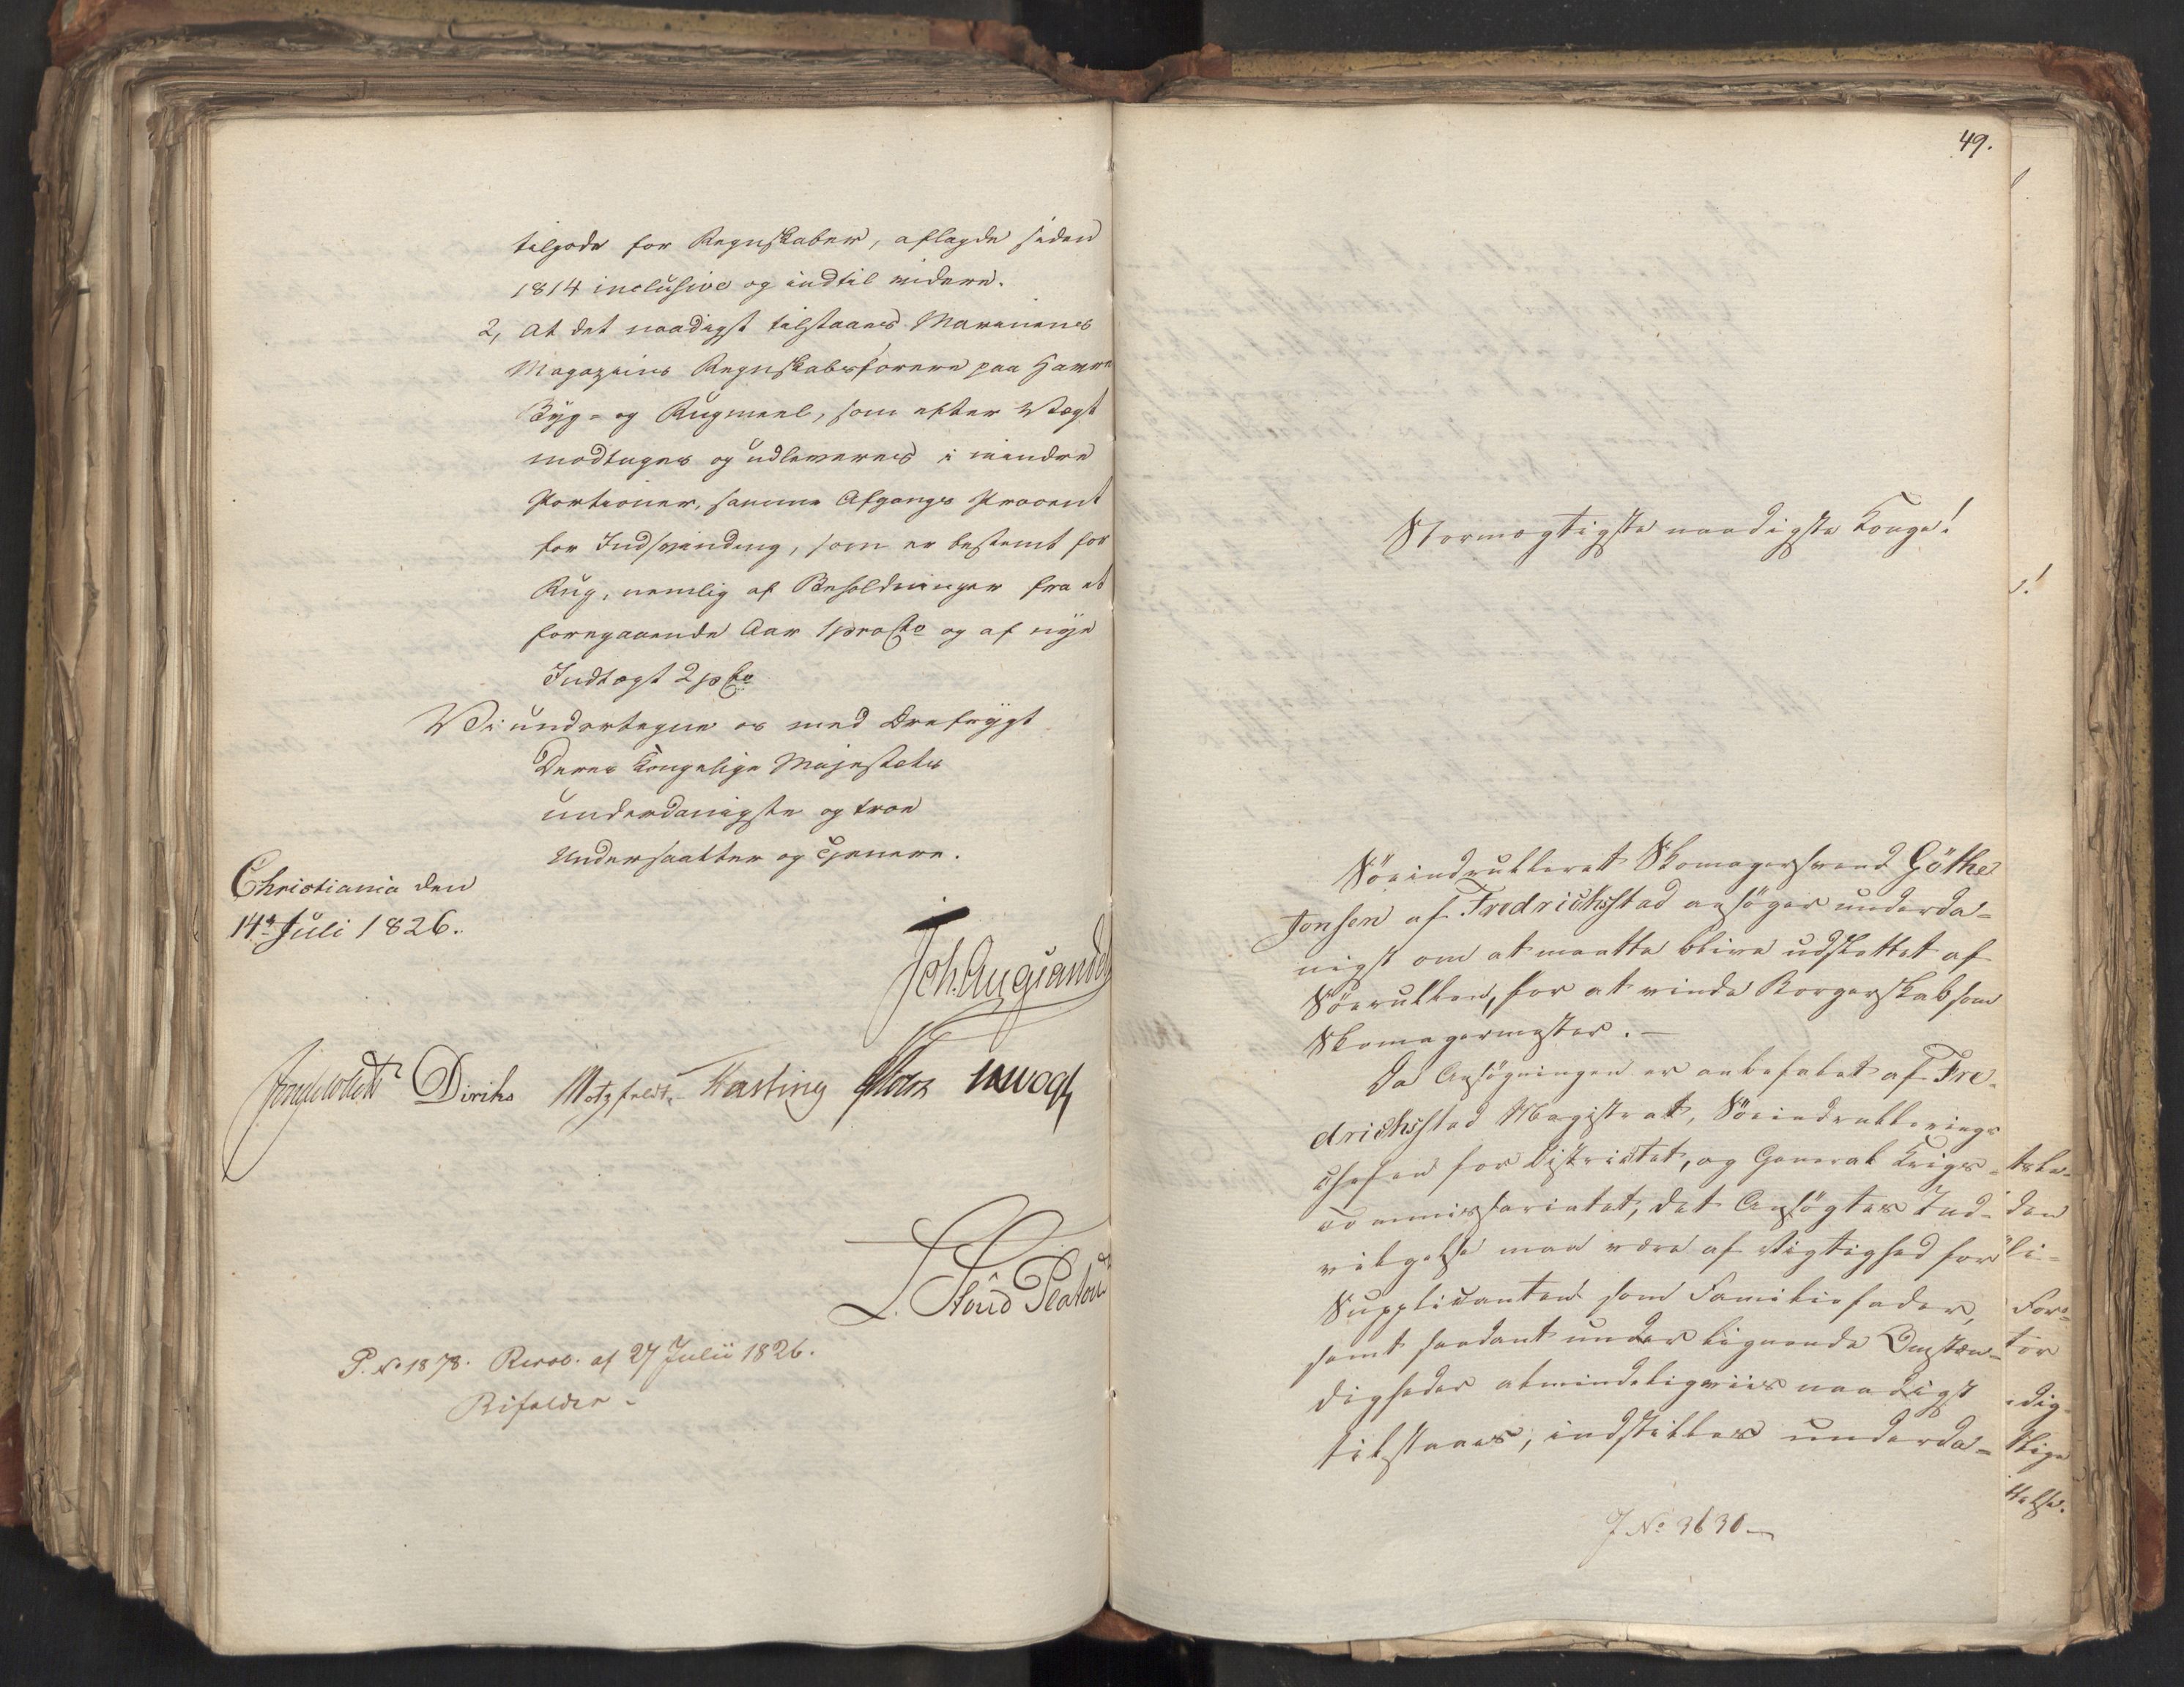 tilgode for Regnskaber, aflagde siden
1814 inclusive og indtil videre.
2, at det naadigst tilstaaes Marinens
Magazins Regnskabsförere paa Havre
Byg- og Rugmeel, som efter Vægt
modtages og udleveres i mindre
Portioner, samme Afgangs Procent
for Indsvinding, som er bestemt for
Rug, nemlig af Beholdninger fra et
foregaaende Aar 1 pro Cto og af nye
Indtægt 2 p Cto
Vi undertegne os med Ærefrygt
Deres Kongelige Majestæts
underdanigste og troe
Undersaatter og Tjenere.
Christiania den
14de Juli 1826.
Joh. Aug. Sandels
Diriks Motzfeldt. Fasting
L. Stoud Platou
P. No 1878. Resol. af 27 Julii 1826.
Bifaldes.
49.
Stormægtigste naadigste Konge!
Söeindrulleret Skomagersvend Göthe
Jonsen af Fredrichsstad ansöger underda-
nigst om at maatte blive udslettet af
Söerullen, for at vinde Borgerskab som
Skomagermester. –
Da Ansögningen er anbefalet af Fre-
drichsstad Magistrat, Söeindrullerings
Chefen for Districtet, og General Krigs-
commissariatet, det Ansögtes Ind-
vilgelse maa være af Vigtighed for
Supplicanten som Familiefader,
samt saadant under lignende Omstæn-
digheder almindeligviis naadigst
tilstaaes, indstilles underda-
J No 3630